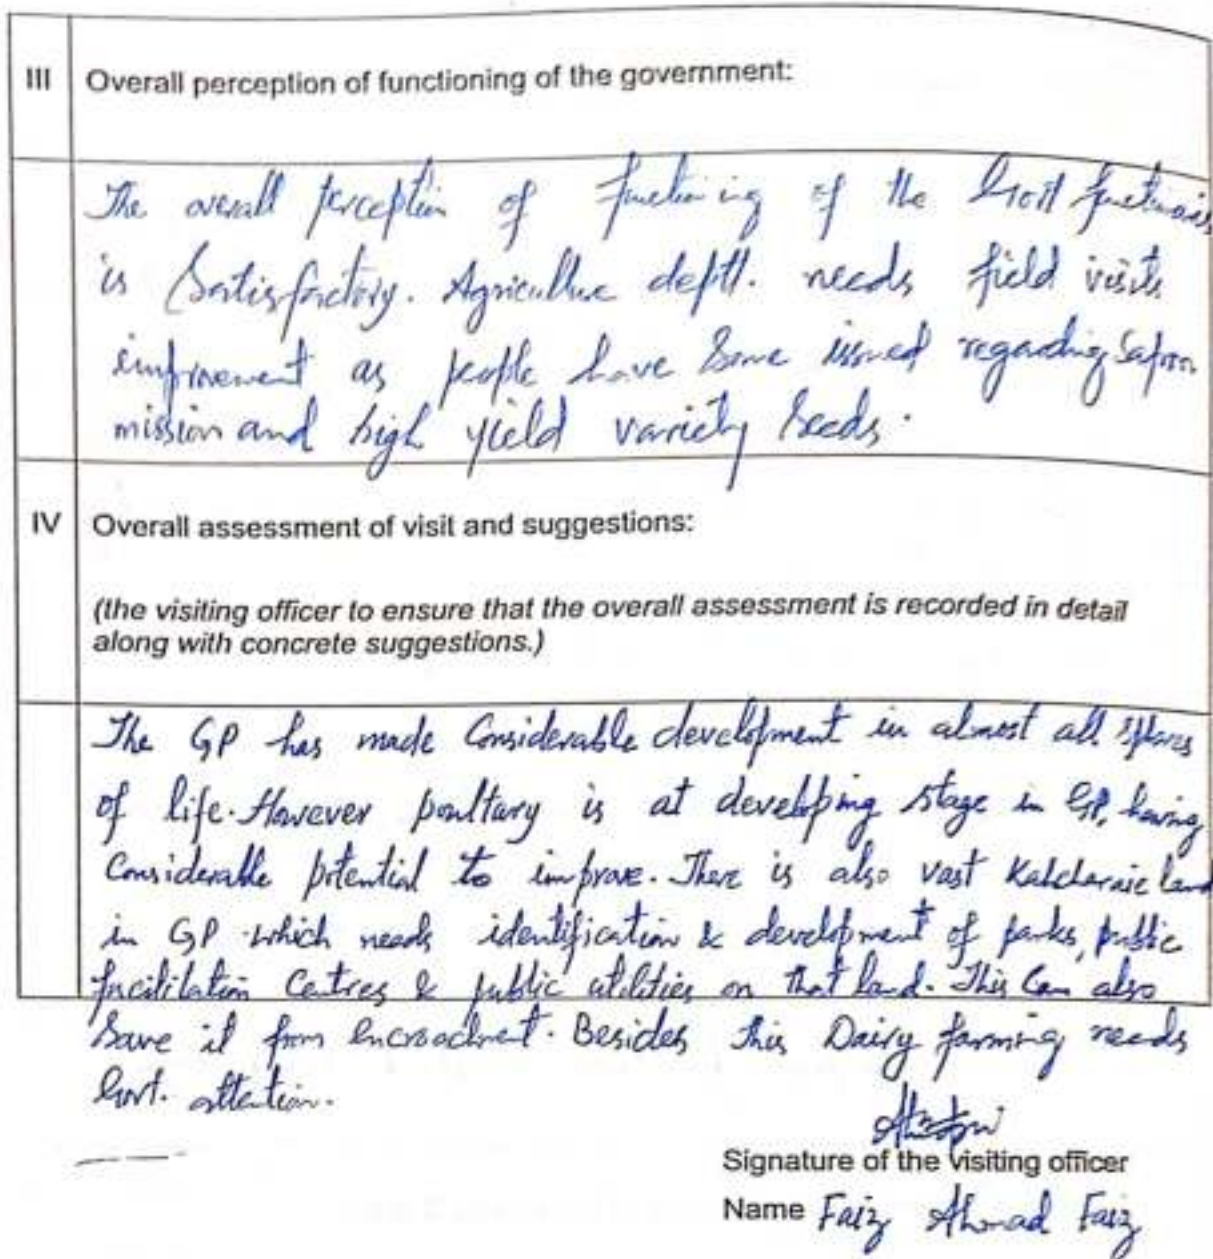 III Overall perception of functioning of the government:
The overall perception of functioning of the Govt functionais
is Satisfactory. Agriculture deptt. needs field visits
improvement as people have Some issued regarding Safron
mission and high yield variety Seeds.
IV Overall assessment of visit and suggestions:
(the visiting officer to ensure that the overall assessment is recorded in detail
along with concrete suggestions.)
The GP has made Considerable development in almost all sphares
of life. However poultary is at developing stage in GP, having
Considerable potential to improve. There is also vast Kahcharaie land
in GP which needs identification & development of parks, public
facilitation Centres & public utilities on that land. This Can also
Save it from encroachment. Besides this Dairy farming needs
Govt. attention.
Signature of the visiting officer
Name Faiz Ahmad Faiz